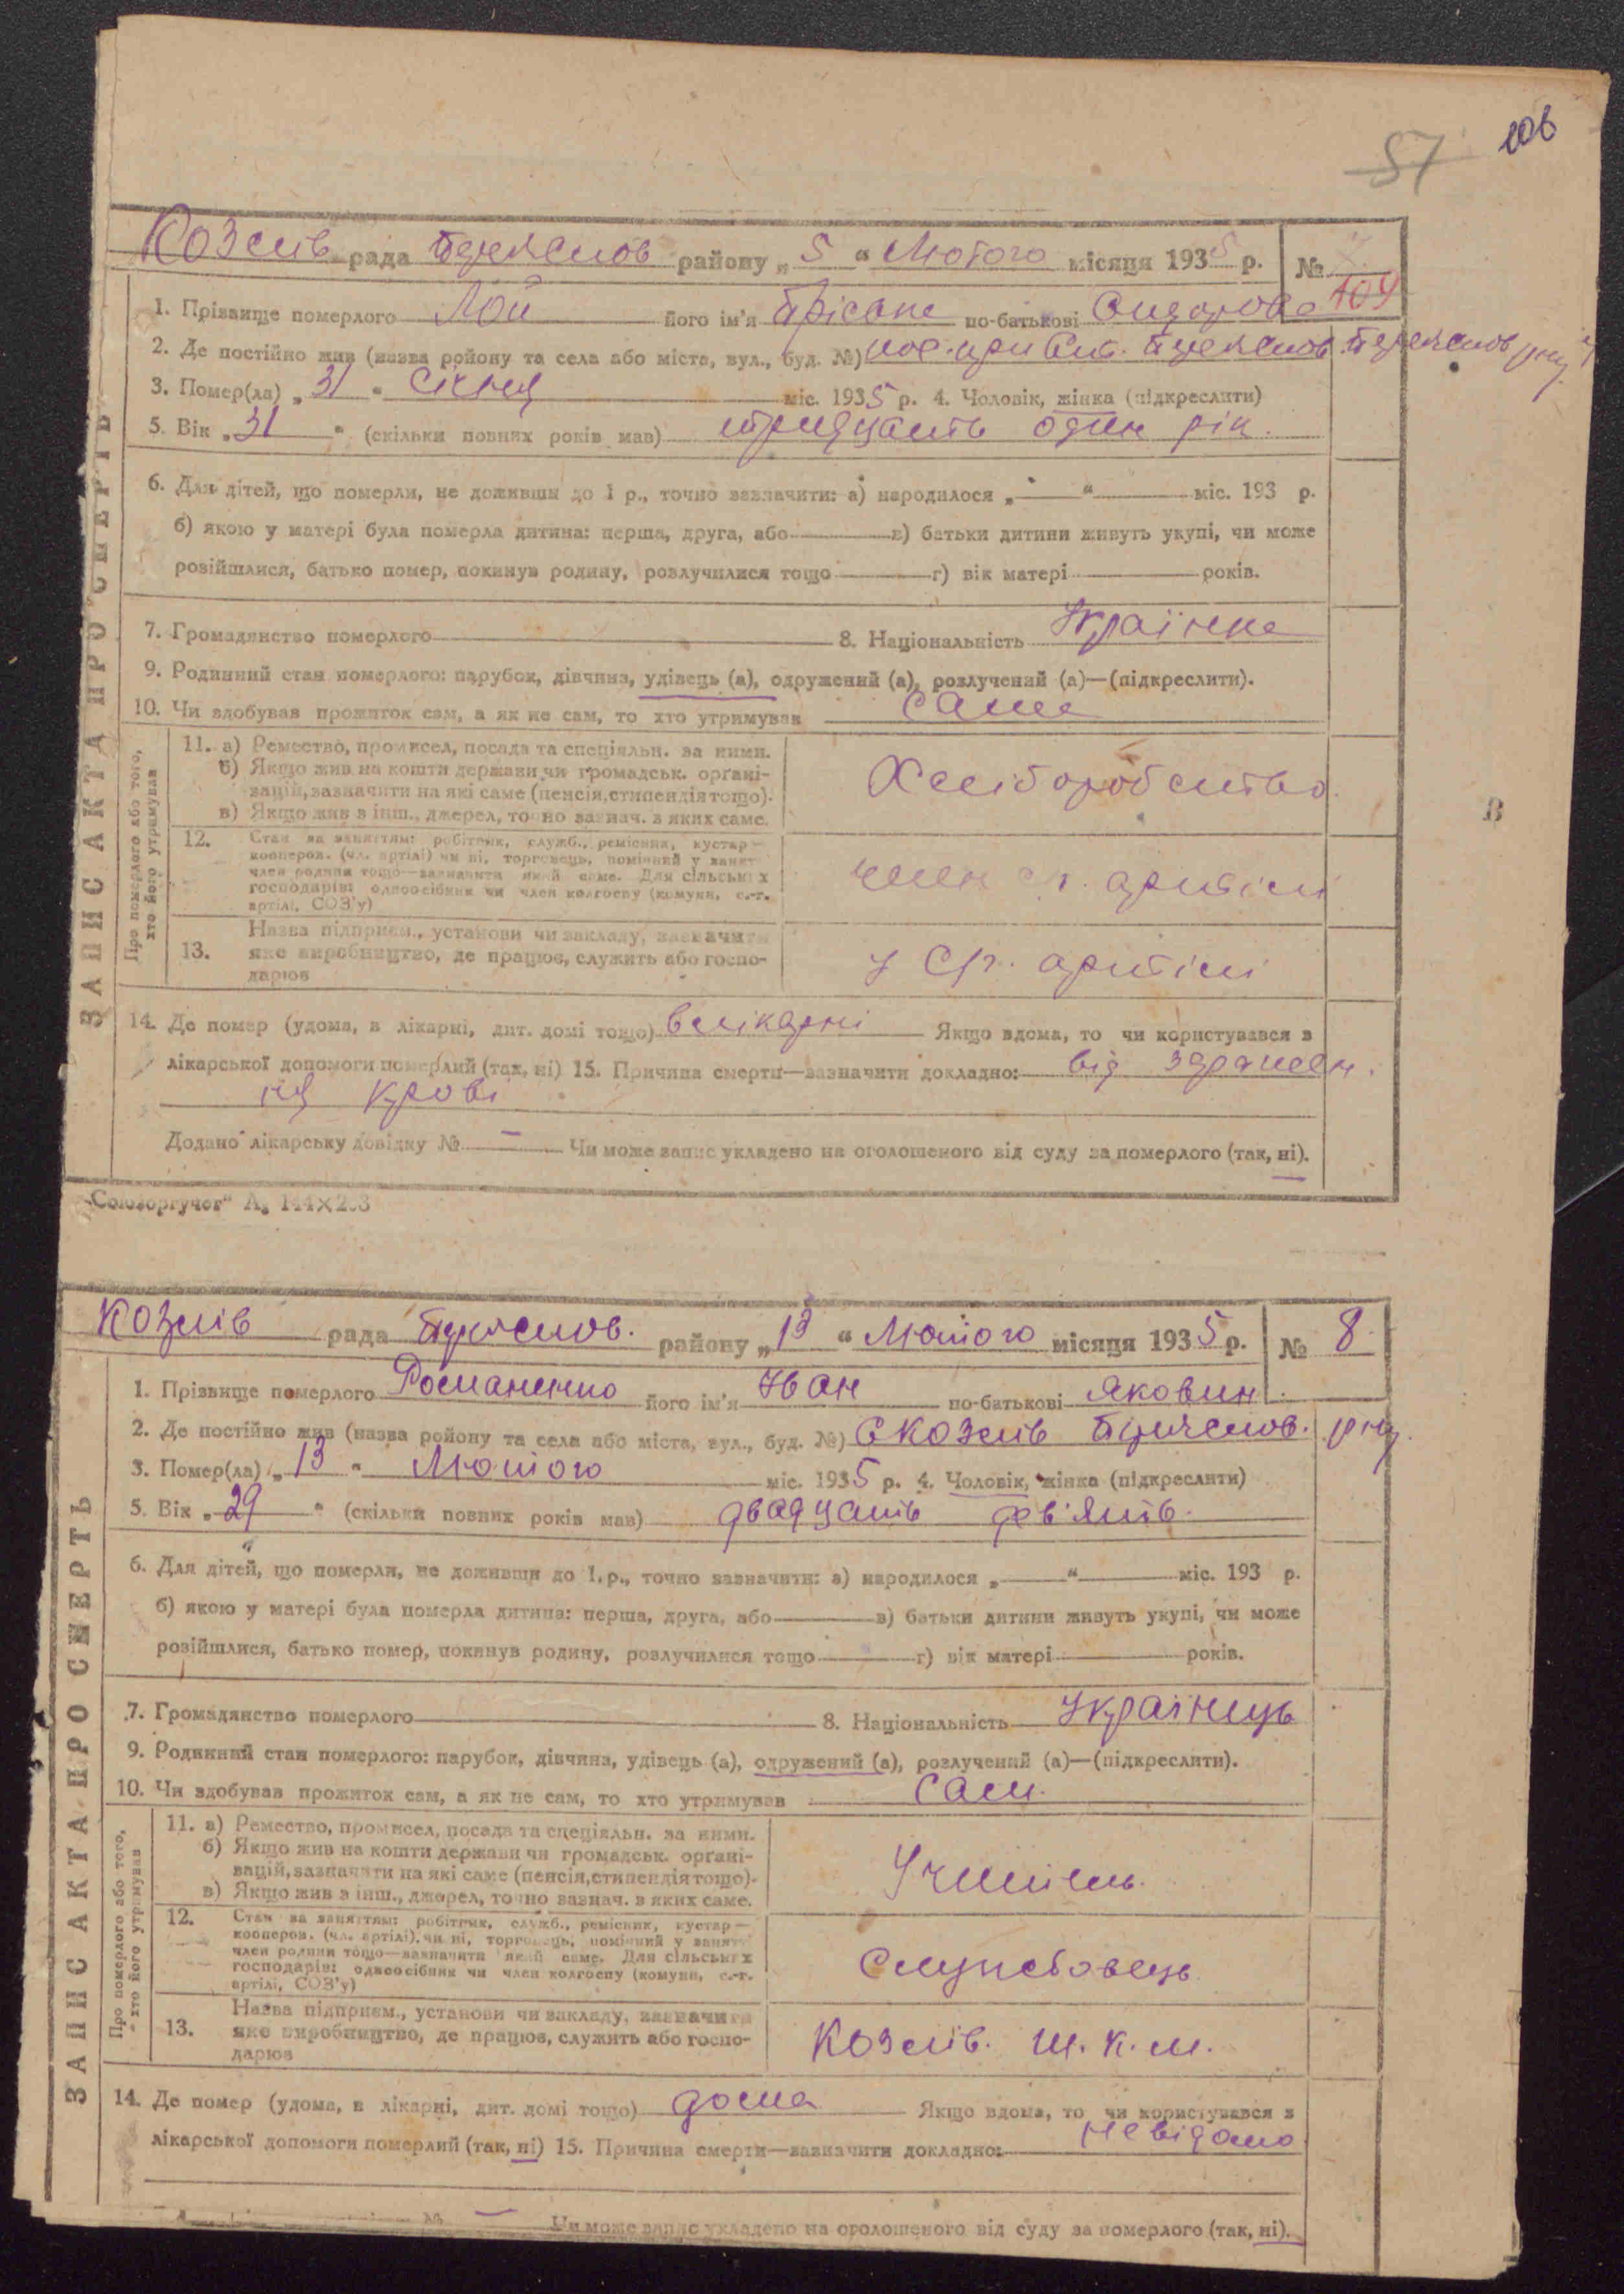 57 106
Козлів рада Переяслов району „5“ Лютого місяця 1935 р. № 7
109
1. Прізвище померлого Лой його ім'я по-батькові Сидорова
2. Де постійно жив (назва району та села або міста, вул., буд. №) пос. при Переяслов. Переяслов р-ну
3. Помер(ла) „31“ Січня міс. 1935 р. 4. Чоловік, жінка (підкреслити)
5. Вік „31“ (скільки повних років мав) тридцать один рік.
6. Для дітей, що померли, не доживши до 1 р., точно зазначити: а) народилося „ “ міс. 193 р.
б) якою у матері була померла дитина: перша, друга, або в) батьки дитини живуть укупі, чи може
розійшлися, батько помер, покинув родину, розлучилися тощо г) вік матері років.
7. Громадянство померлого 8. Національність Українка
9. Родинний стан померлого: парубок, дівчина, удівець (а), одружений (а), розлучений (а)—(підкреслити).
10. Чи здобував прожиток сам, а як не сам, то хто утримував сама
ЗАПИС АКТА ПРО СМЕРТЬ
Про померлого або того,
хто його утримував
11. а) Ремество, промисел, посада та спеціяльн. за ними.
б) Якщо жив на кошти держави чи громадськ. орґані-
зацій, зазначити на які саме (пенсія, стипендія тощо).
в) Якщо жив з інш., джерел, точно зазнач. з яких саме.
Хліборобство
12. Стан за заняттям: робітник, служб., ремісник, кустар—
кооперов. (чл. артілі) чи ні, торговець, помічний у занят.
член родини тощо—зазначити який саме. Для сільських
господарів: одноосібник чи член колгоспу (комуни, с.-г.
артілі, СОЗ'у)
член с.г. артілі
13. Назва підприєм., установи чи закладу, зазначити
яке виробництво, де працює, служить або госпо-
дарює
у С.г. артілі
14. Де помер (удома, в лікарні, дит. домі тощо) в лікарні Якщо вдома, то чи користувався з
лікарської допомоги померлий (так, ні) 15. Причина смерти—зазначити докладно: від заражен.
ня крові
Додано лікарську довідку № — Чи може запис укладено на оголошеного від суду за померлого (так, ні).
В
„Союзоргучет“ А₅ 144×203
Козлів рада Переяслов. району „13“ Лютого місяця 1935 р. № 8
1. Прізвище померлого Романенко його ім'я Іван по-батькові Яковин
2. Де постійно жив (назва району та села або міста, вул., буд. №) С Козлів Переяслов. р-ну.
3. Помер(ла) „13“ Лютого міс. 1935 р. 4. Чоловік, жінка (підкреслити)
5. Вік „29“ (скільки повних років мав) двадцать дев'ять.
6. Для дітей, що померли, не доживши до 1 р., точно зазначити: а) народилося „ “ міс. 193 р.
б) якою у матері була померла дитина: перша, друга, або в) батьки дитини живуть укупі, чи може
розійшлися, батько помер, покинув родину, розлучилися тощо г) вік матері років.
7. Громадянство померлого 8. Національність Українець
9. Родинний стан померлого: парубок, дівчина, удівець (а), одружений (а), розлучений (а)—(підкреслити).
10. Чи здобував прожиток сам, а як не сам, то хто утримував Сам.
ЗАПИС АКТА ПРО СМЕРТЬ
Про померлого або того,
хто його утримував
11. а) Ремество, промисел, посада та спеціяльн. за ними.
б) Якщо жив на кошти держави чи громадськ. орґані-
зацій, зазначити на які саме (пенсія, стипендія тощо).
в) Якщо жив з інш., джерел, точно зазнач. з яких саме.
Учитель.
12. Стан за заняттям: робітник, служб., ремісник, кустар—
кооперов. (чл. артілі), чи ні, торговець, помічний у занят.
член родини тощо—зазначити який саме. Для сільських
господарів: одноосібник чи член колгоспу (комуни, с.-г.
артілі, СОЗ'у)
Службовець.
13. Назва підприєм., установи чи закладу, зазначити
яке виробництво, де працює, служить або госпо-
дарює
Козлів. Ш. К. М.
14. Де помер (удома, в лікарні, дит. домі тощо) дома Якщо вдома, то чи користувався з
лікарської допомоги померлий (так, ні) 15. Причина смерти—зазначити докладно: Невідомо
№ — Чи може запис укладено на оголошеного від суду за померлого (так, ні).